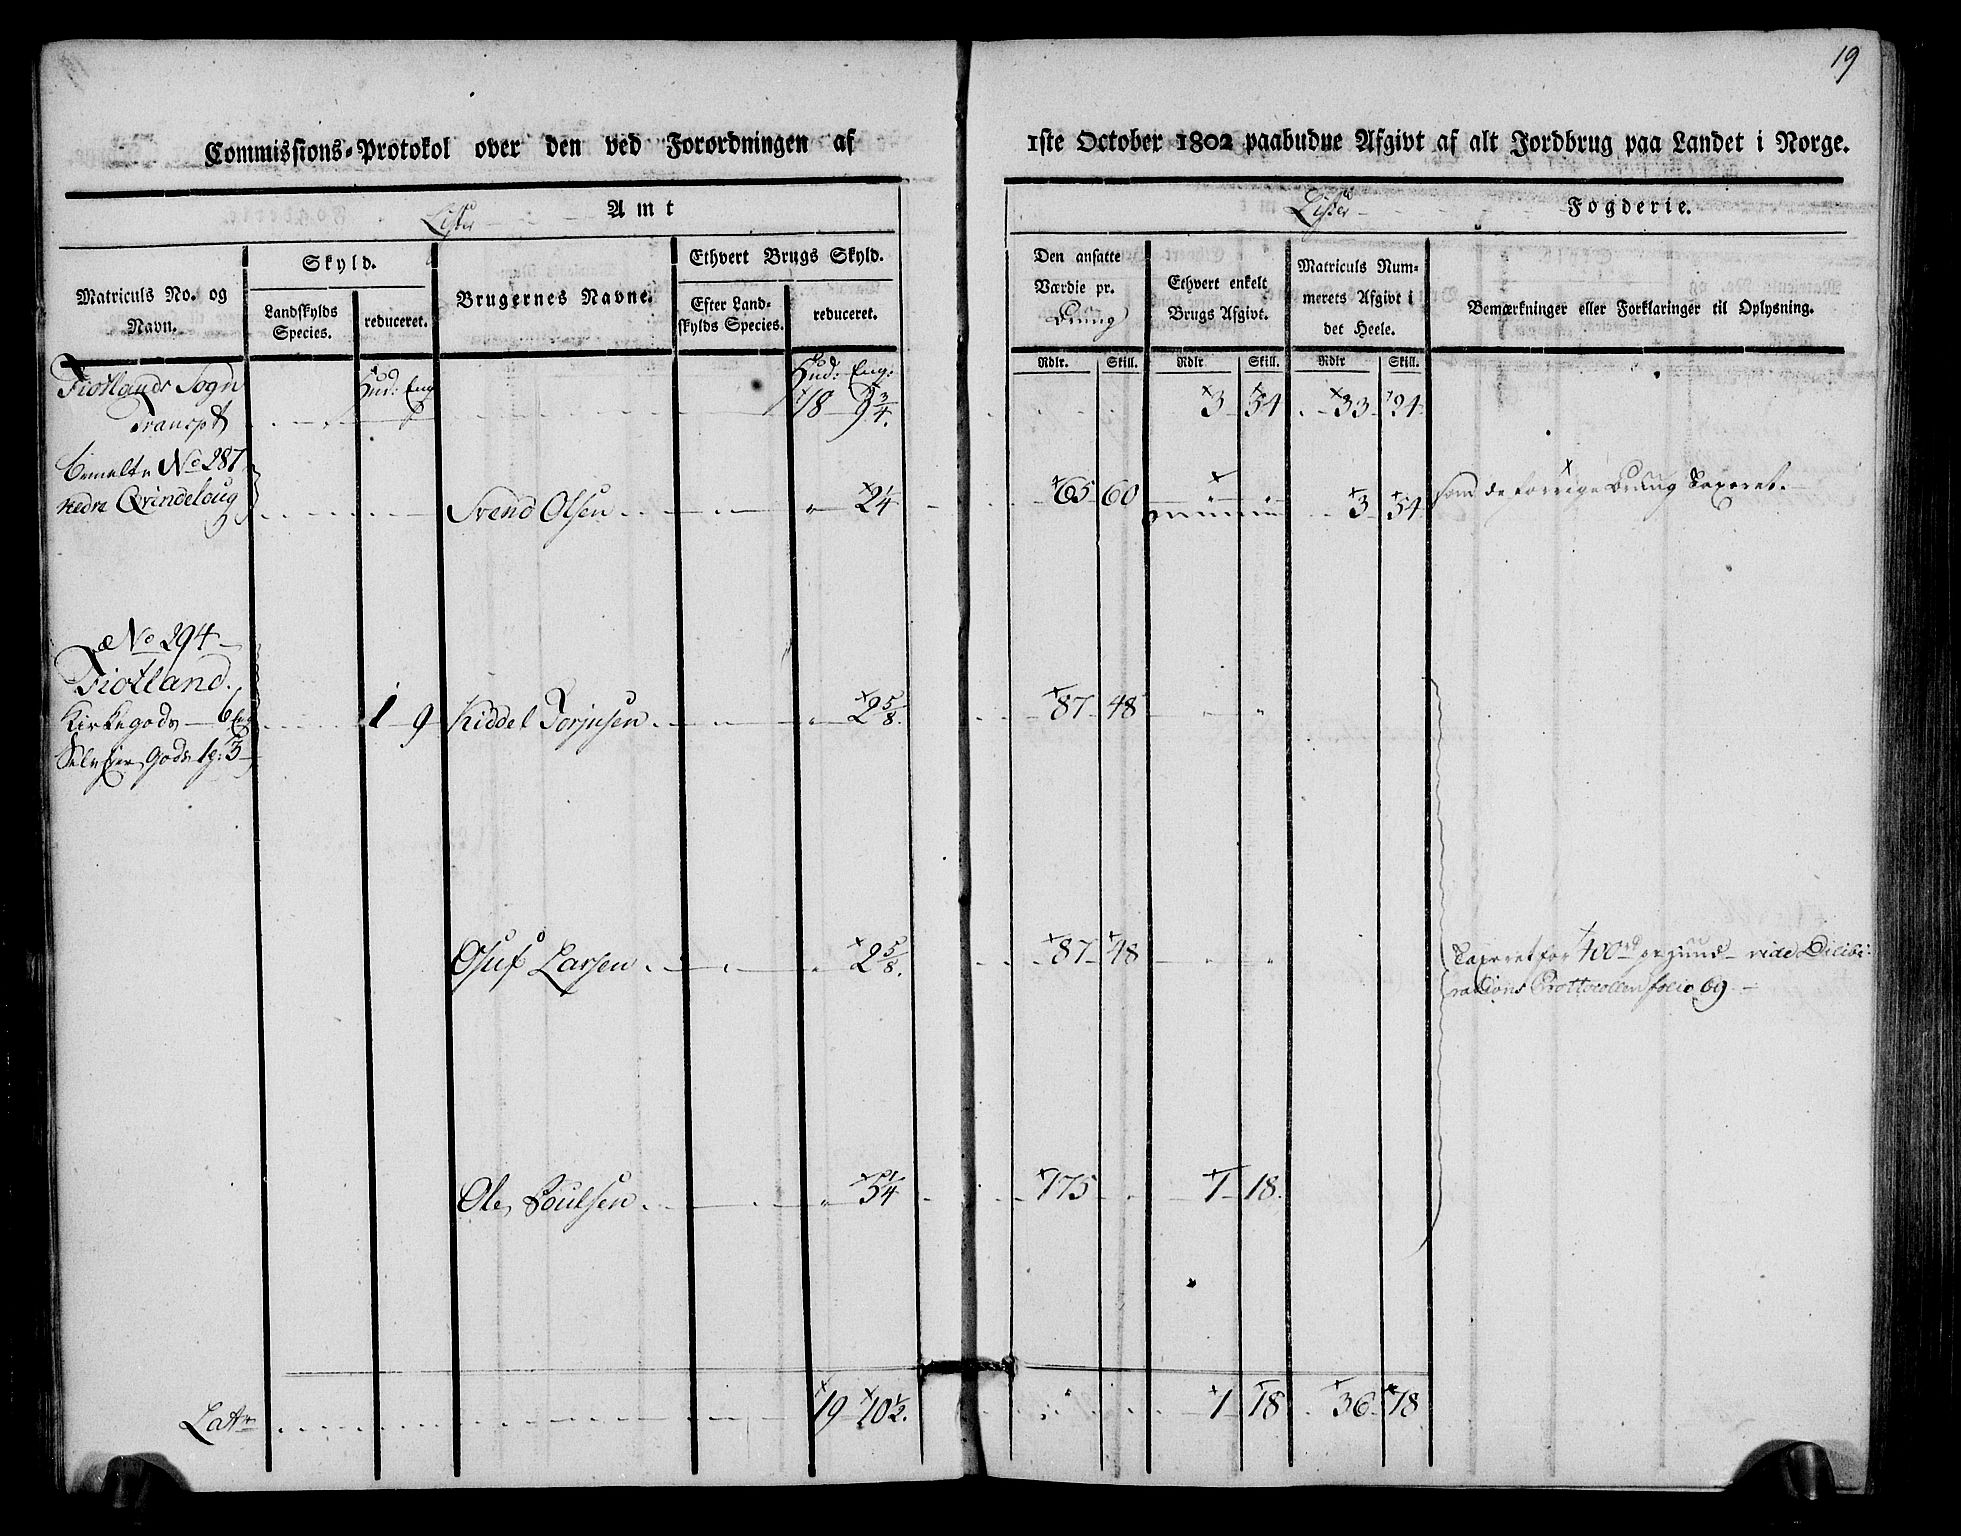 19
Commissions-Protokol over den ved Forordningen af
1ste October 1802 paabudne Afgivt af alt Jordbrug paa Landet i Norge.
Lister Amt
Lister Fogderie.
Matriculs No. og Navn.
Skyld.
Landskylds Species.
reduceret.
Brugernes Navne.
Ethvert Brugs Skyld.
Efter Landskylds Species.
reduceret.
Den ansatte Værdie pr.
Ethvert enkelt Brugs Afgivt.
Matriculs Nummerets Afgivt i det Heele.
Bemærkninger eller Forklaringer til Oplysning.
Rdlr. Skill. Rdlr Skill. Rdlr Skill.
Fiotlands Sogn Hud: Eng Hud: Eng:
Transpt 18 9 3/4. 3 54 33 24
No 287
nedre Qvindeloug Svend Olsen 2 1/4 65 60 3 54
No 294
Fiotland.
Kirkegods 6 Eng 1 9 Kiddel Torjusen 2 5/8. 87 48
Selveier Gods 1 g: 3
Oluf Larsen 2 5/8. 87 48 Taxeret for 400 rd vide Delibe-
rations Prottocollen folio 69
Ole Poulsen 5 1/4 175 1 18.
Lat 19 10 1/2. 1 18 36 78